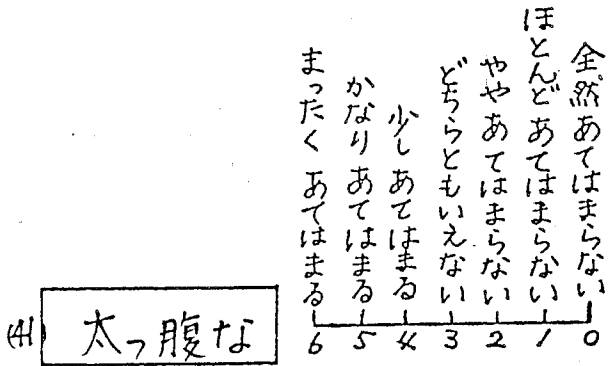 全然あてはまらない
ほとんどあてはまらない
ややあてはまらない
どちらともいえない
少しあてはまる
かなりあてはまる
まったくあてはまる
(41) 太っ腹な
6 5 4 3 2 1 0